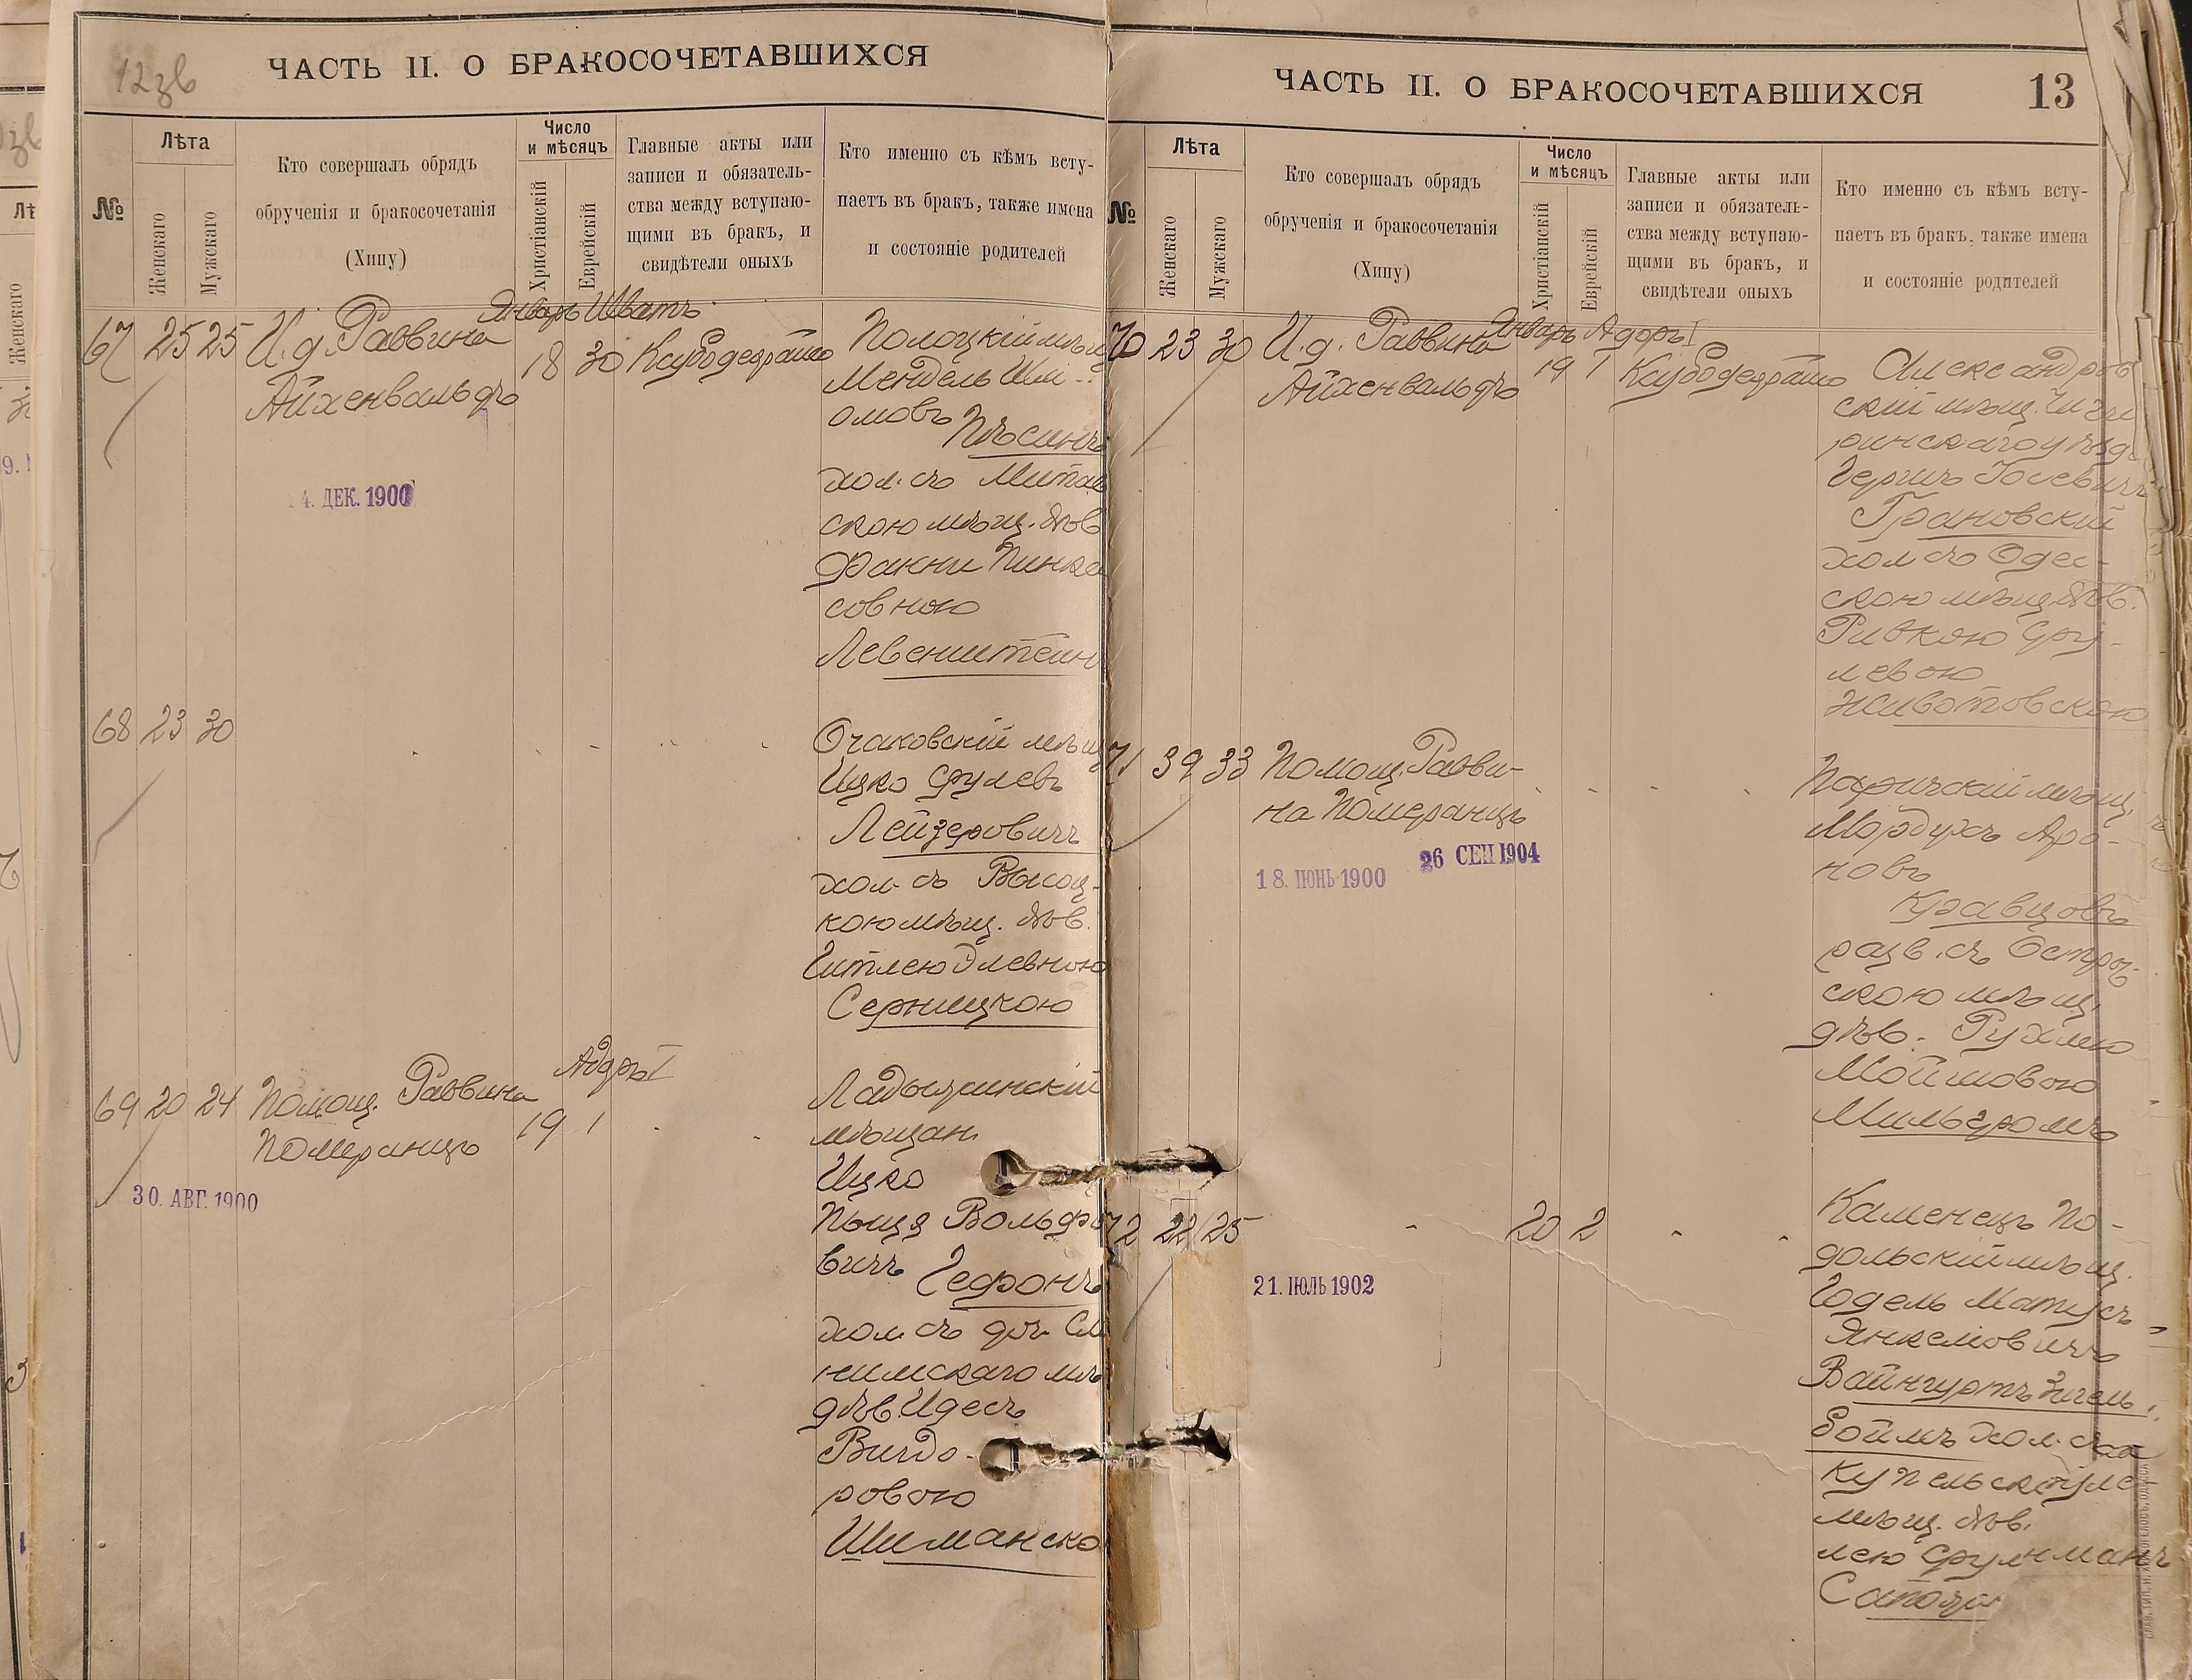 12 зв
ЧАСТЬ II. О БРАКОСОЧЕТАВШИХСЯ
№
Лѣта
Женскаго
Мужскаго
Кто совершалъ обрядъ
обрученія и бракосочетанія
(Хипу)
Число
и мѣсяцъ
Христіанскій
Еврейскій
Главные акты или
записи и обязатель-
ства между вступаю-
щими въ бракъ, и
свидѣтели оныхъ
Кто именно съ кѣмъ всту-
паетъ въ бракъ, также имена
и состояніе родителей
Январь Шватъ
67 25 25 И. д. Раввина
Айхенвальдъ
18 30
14. ДЕК. 1900
Полоцкій мѣщ
Мендель Шли-
омовъ
хол. съ Митав
скою мѣщ. дѣв
Фанни Пинха
совною
Левенштейн
68 23 30
Очаковскій мѣщ
Ицко Срулевъ
Лейзеровичъ
хол. съ Высоц-
кою мѣщ. дѣв.
Гитлею Элевною
Серницкою
Адаръ I
69 20 24 Помощ. Раввина
Померанцъ
19 1
30. АВГ. 1900
Ладыжинскій
мѣщан.
Ицко
Вольфо
вичъ Гефонъ
хол. съ доч. Сло
нимскаго мѣ
дѣв. Идесъ
Вигдо-
ровою
Шиманско
ЧАСТЬ II. О БРАКОСОЧЕТАВШИХСЯ
13
№
Лѣта
Женскаго
Мужскаго
Кто совершалъ обрядъ
обрученія и бракосочетанія
(Хипу)
Число
и мѣсяцъ
Христіанскій
Еврейскій
Главные акты или
записи и обязатель-
ства между вступаю-
щими въ бракъ, и
свидѣтели оныхъ
Кто именно съ кѣмъ всту-
паетъ въ бракъ, также имена
и состояніе родителей
Январь Адаръ I
70 23 30 И. д. Раввина
Айхенвальдъ
19 1
Александров
скій мѣщ. Чиги
ринскаго уѣзд.
Гершъ Іосевичъ
Грановскій
хол. съ Одес-
скою мѣщ. дѣв.
Ривкою Сру-
левою
Животовскою
71 39 33 Помощ. Равви-
на Померанцъ
18. ІЮНЬ 1900
26 СЕН 1904
Паричскій мѣщ.
Мордухъ Аро-
новъ
Кравцовъ
разв. съ Острог-
скою мѣщ.
дѣв. Рухлею
Мойшовою
Мильгромъ
72 22 25
20 2
21. ІЮЛЬ 1902
Каменецъ По-
дольскій мѣщ.
Годель Матусъ
Янкелювичъ
Вайнгуртъ Зигель-
боймъ хол. съ
мѣщ. дѣв.